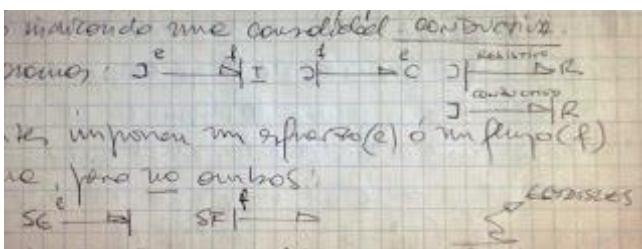 indicando una causalidad conductiva.
e f f e RESISTIVO
J I J C J R
CONDUCTIVO
J R
imponen un esfuerzo(e) ó un flujo(f)
, pero no ambos:
e f
SE SF